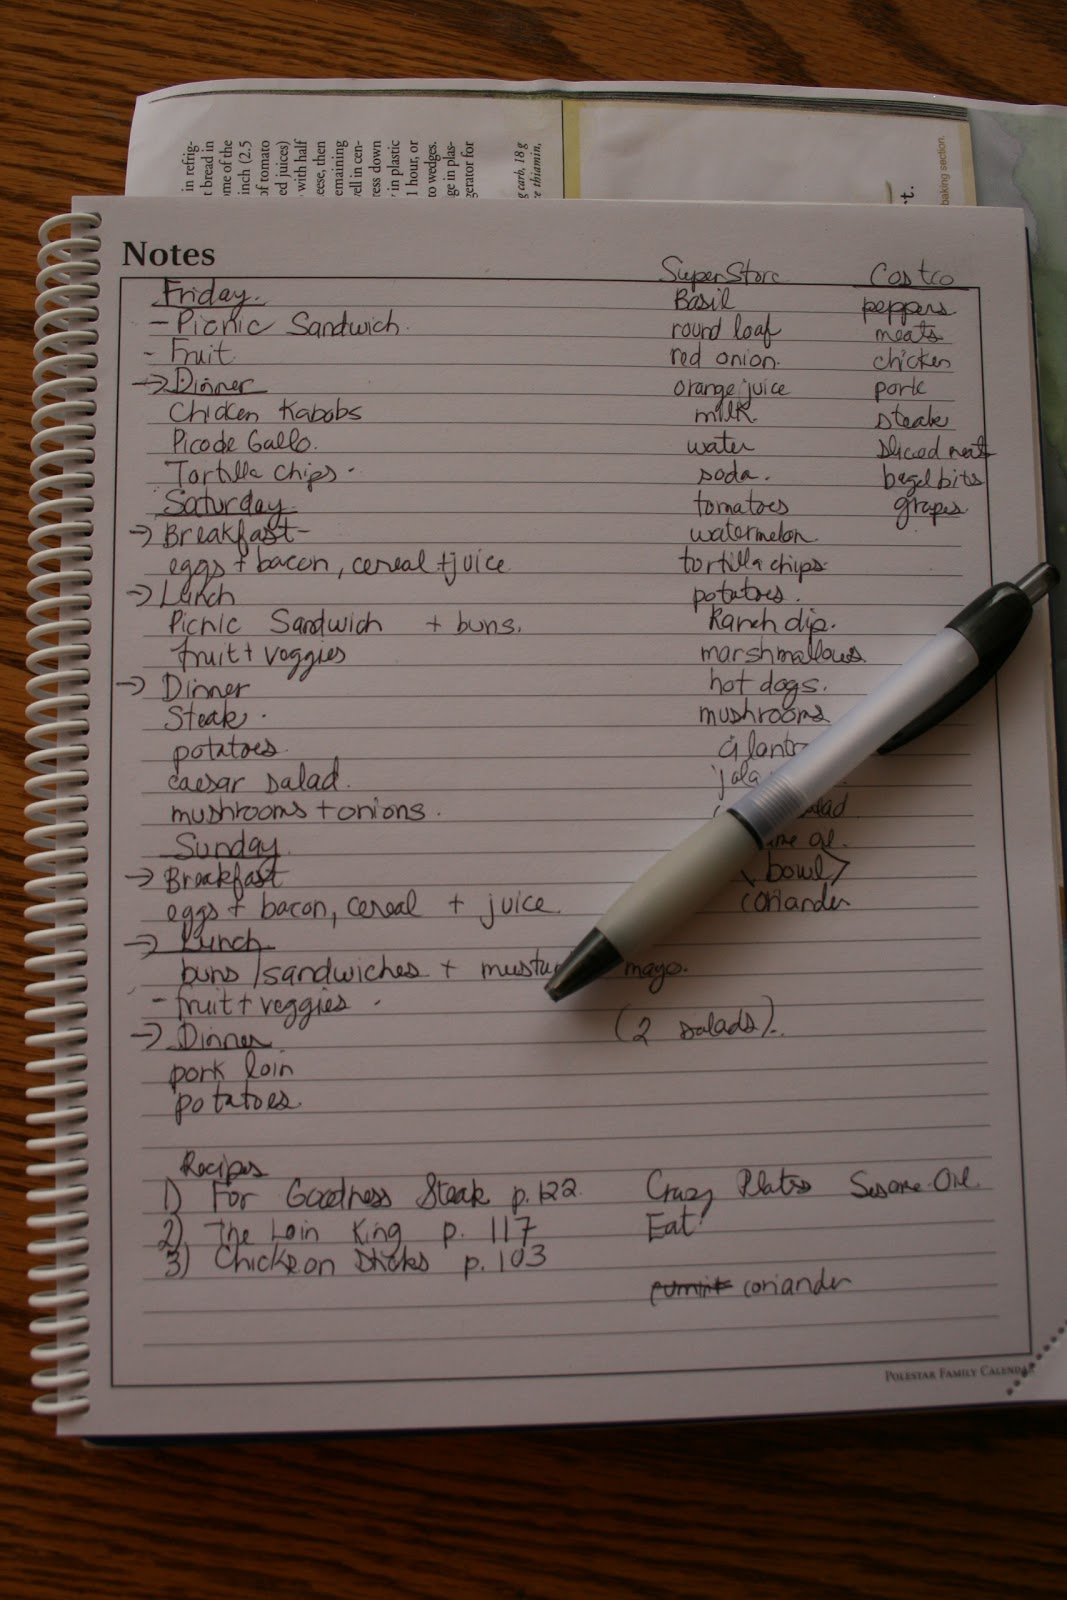 in refrig-
t bread in
ome of the
inch (2.5
of tomato
ed juices)
with half
eese, then
emaining
vell in cen-
ress down
y in plastic
1 hour, or
to wedges.
ge in plas-
gerator for
g carb, 18 g
e thiamin,
rt.
baking section.
Notes
Friday.
- Picnic Sandwich.
- Fruit
→ Dinner
Chicken Kabobs
Pico de Gallo.
Tortilla Chips.
Saturday
→ Breakfast-
eggs + bacon, cereal + juice
→ Lunch
Picnic Sandwich + buns.
fruit + veggies
→ Dinner
Steak.
potatoes
caesar salad.
mushrooms + onions.
Sunday
→ Breakfast
eggs + bacon, cereal + juice.
→ Lunch
buns/sandwiches + mustu mayo.
- fruit + veggies.
(2 salads).
→ Dinner
pork loin
potatoes.
SuperStore
Basil
round loaf
red onion.
orange juice
milk.
water
soda.
tomatoes
watermelon
tortilla chips
potatoes.
Ranch dip.
marshmallows
hot dogs.
mushrooms
cilantr
jala
lad
ame oil.
(bowl)
coriander
Costco
peppers
meats
chicken
pork
steak
sliced meat
bagel bits
grapes
Recipes
1) For Goodness Steak p. 122. Crazy Plates Sesame Oil.
2) The Loin King p. 117 Eat!
3) Chickeon Sticks p. 103
coriander
POLESTAR FAMILY CALENDAR